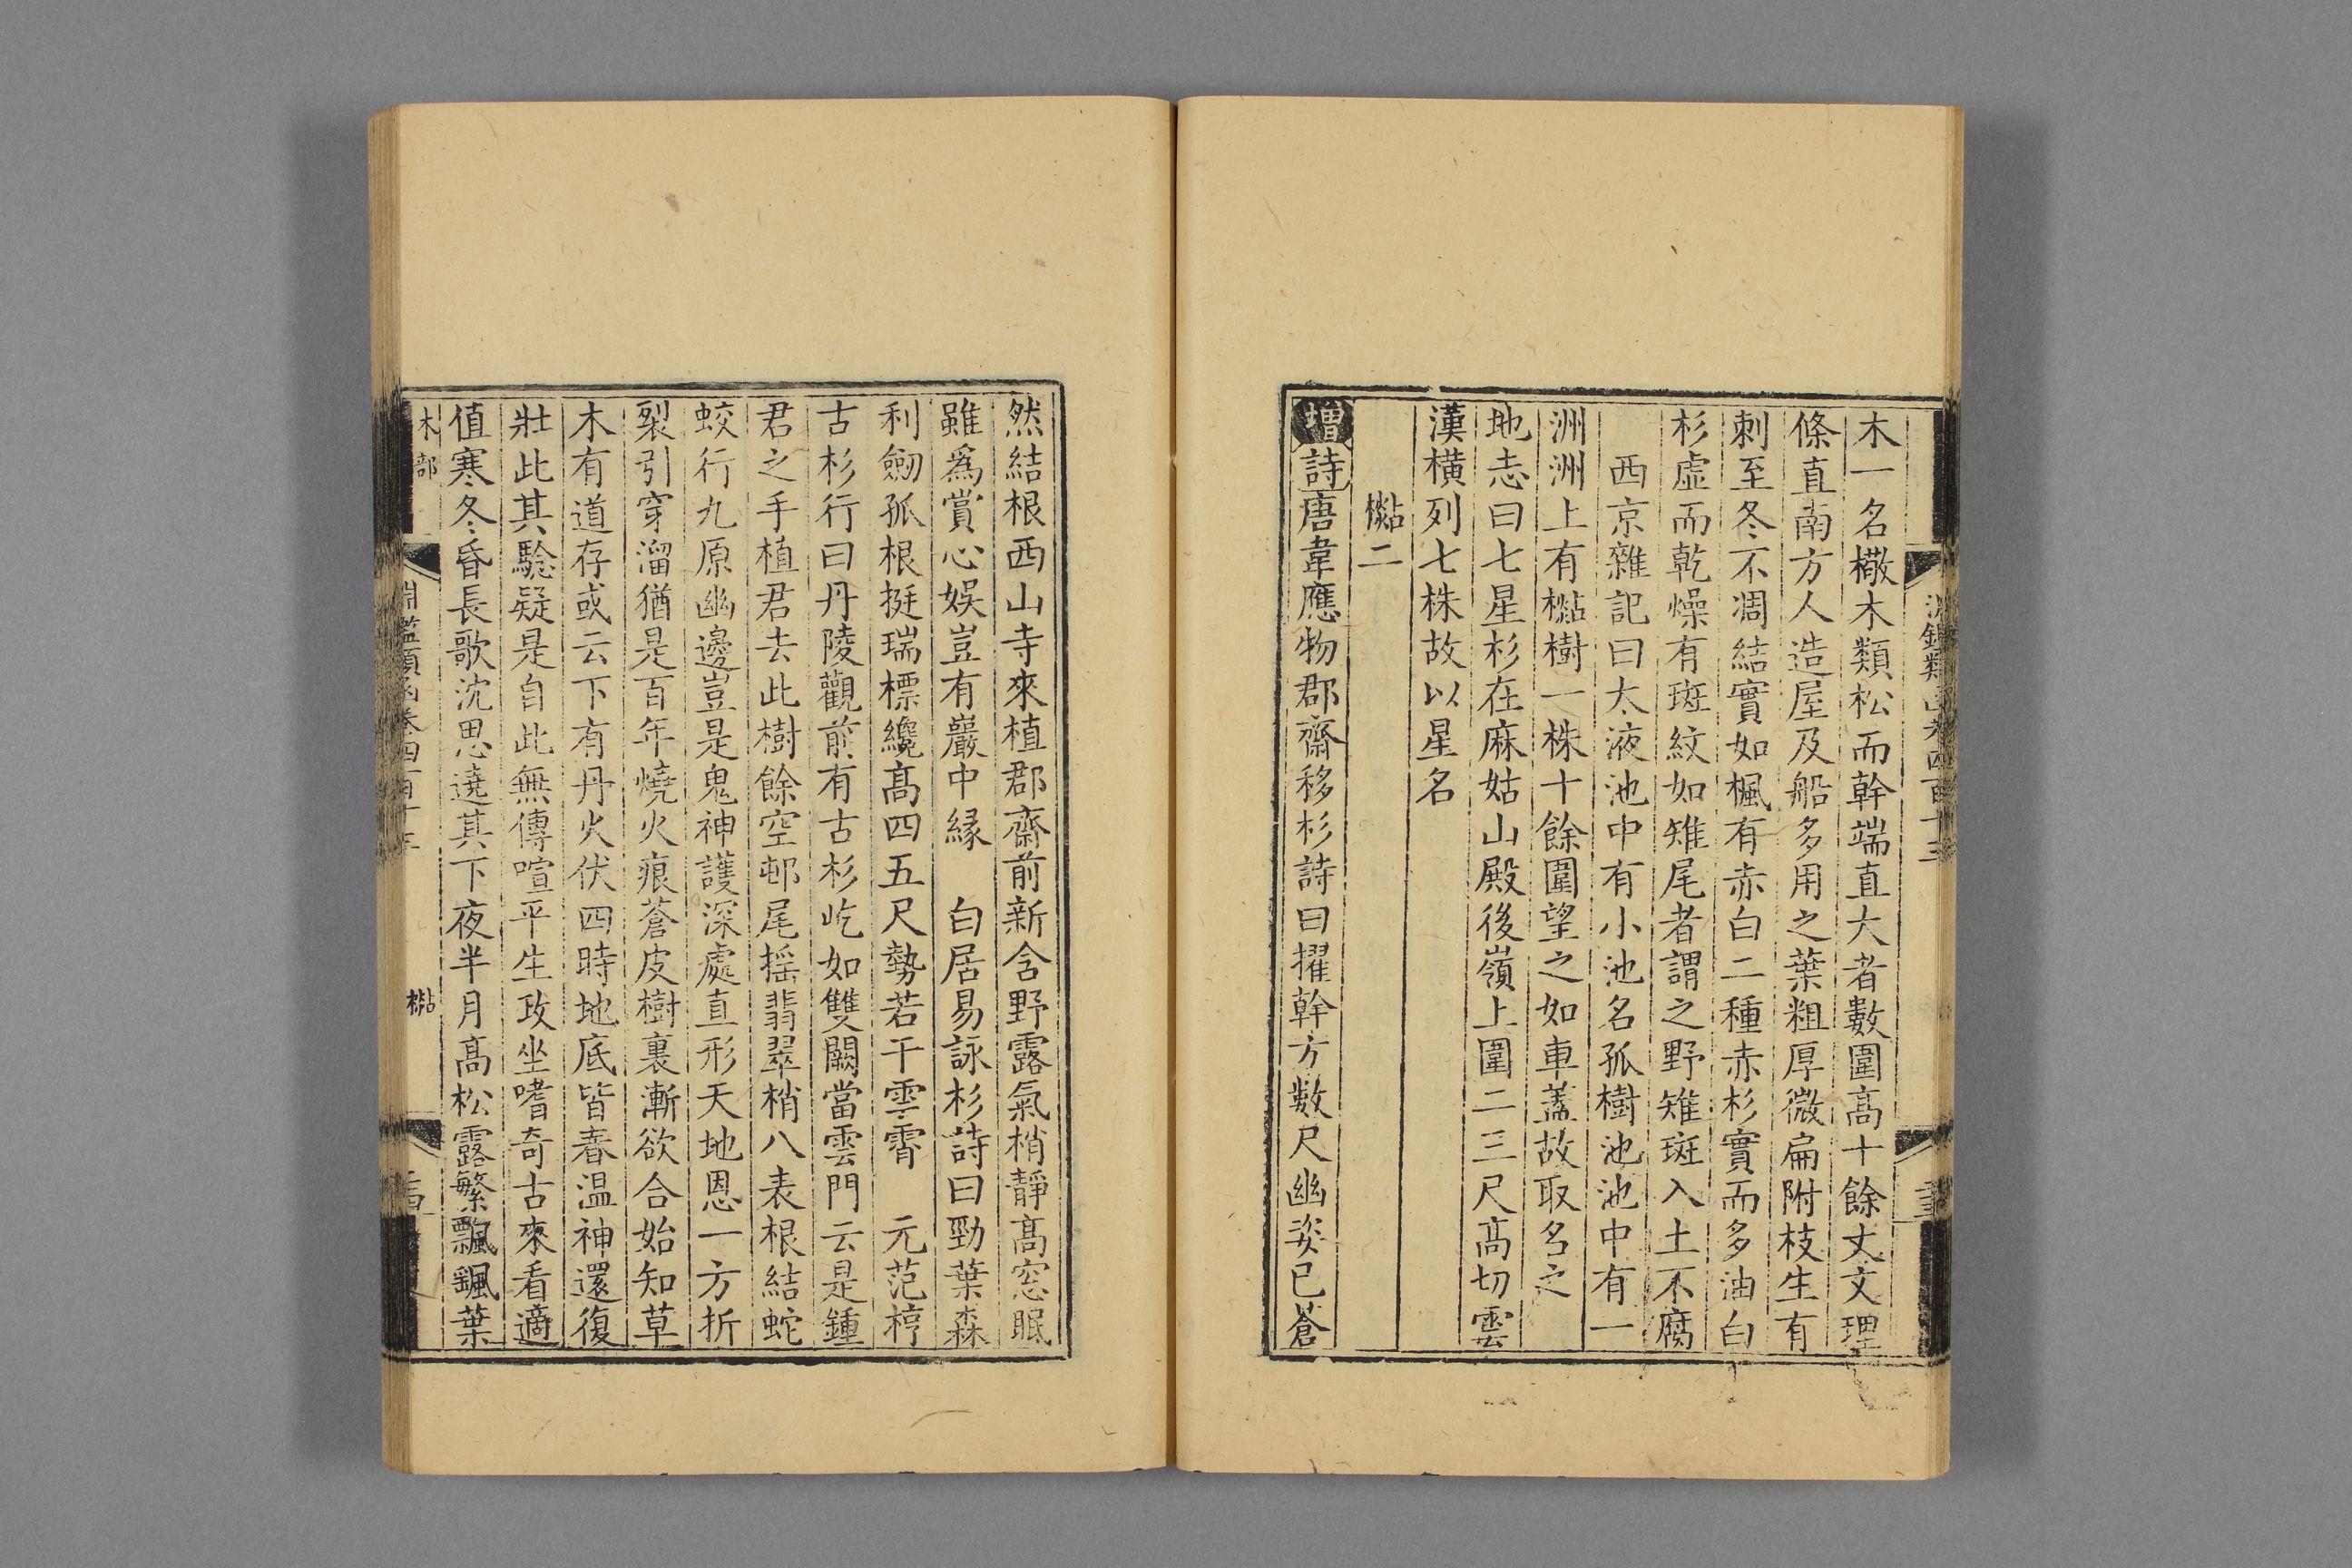 木一名橵木類松而幹端直大者數圍高十餘丈文理
條直南方人造屋及船多用之葉粗厚微扁附枝生有
刺至冬不凋結實如楓有赤白二種赤杉實而多油白
杉虛而乾燥有斑紋如雉尾者謂之野雉斑入土不腐
西京雜記曰太液池中有小池名孤樹池池中有一
洲洲上有㯳樹一株十餘圍望之如車蓋故取名之
地志曰七星杉在麻姑山殿後嶺上圍二三尺高切雲
漢橫列七株故以星名
㯳二
增詩唐韋應物郡齋移杉詩曰擢幹方數尺幽姿已蒼
然結根西山寺來植郡齋前新含野露氣梢靜高窓眠
雖爲賞心娛豈有巖中緣 白居易詠杉詩曰勁葉森
利劒孤根挺瑞標纔高四五尺勢若干雲霄 元范梈
古杉行曰丹陵觀前有古杉屹如雙闕當雲門云是鍾
君之手植君去此樹餘空邨尾摇翡翠梢八表根結蛇
蛟行九原幽邊豈是鬼神護深處直形天地恩一方折
裂引穿溜猶是百年燒火痕蒼皮樹裏漸欲合始知草
木有道存或云下有丹火伏四時地底皆春温神還復
壯此其驗疑是自此無傳喧平生攻坐嗜奇古來看適
值寒冬昏長歌沈思遶其下夜半月高松露繁飄飄葉
木部
淵鑑類函卷四百十三
㯳